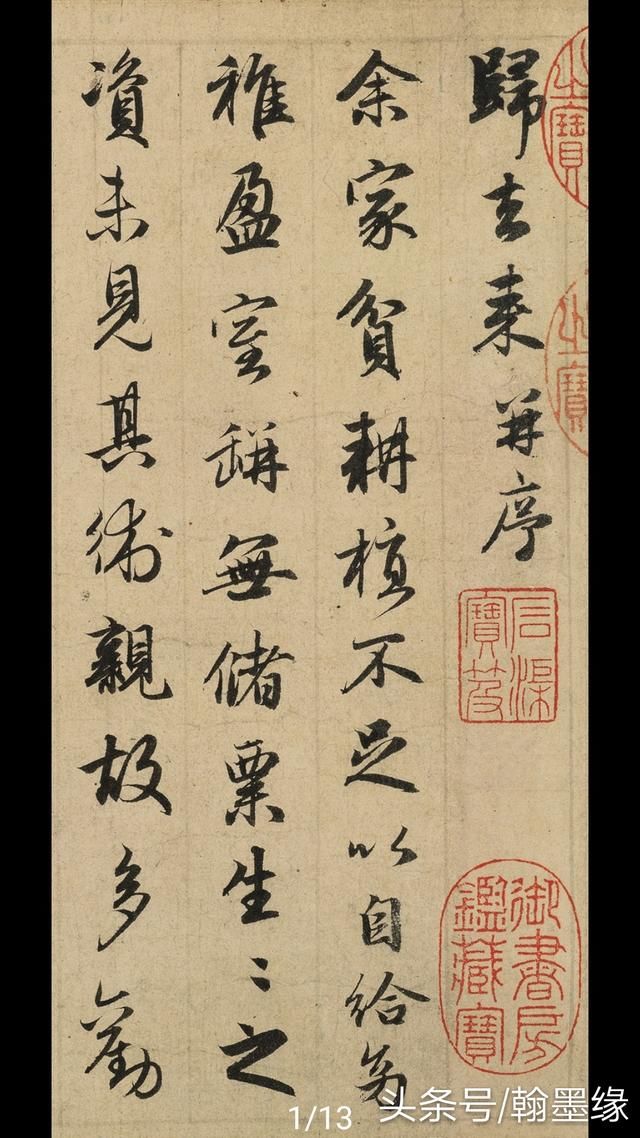 之寶
之寶
歸去来并序
石渠
寶笈
御書房
鑑藏寶
余家貧耕植不足以自給幼
稚盈室缾無儲粟生〻之
資未見其術親故多勸
1/13
头条号/翰墨缘